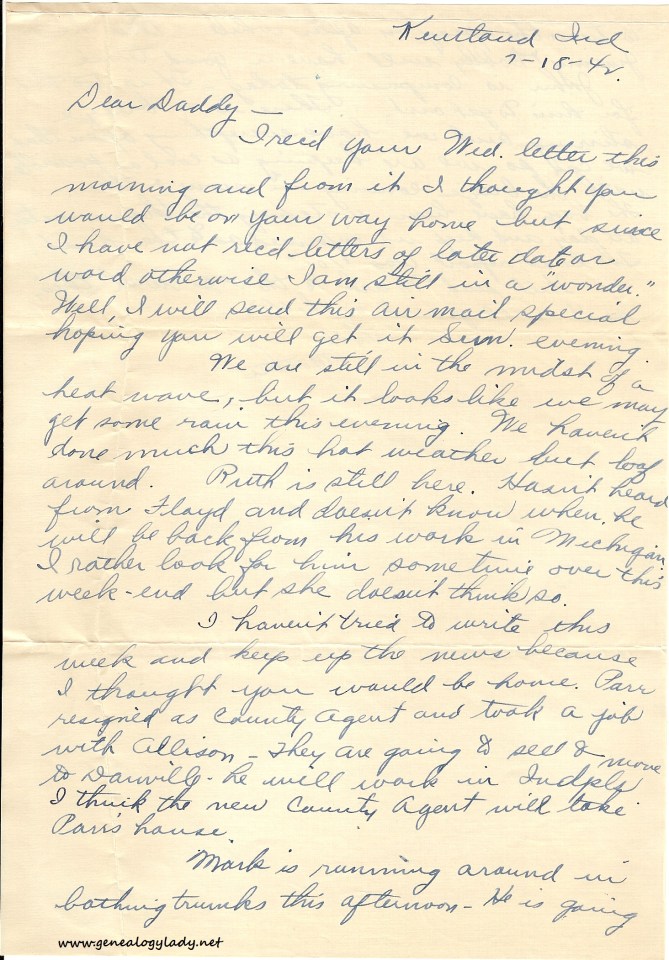 Kentland Ind
7-18-42.
Dear Daddy —
I rec'd your Wed. letter this
morning and from it I thought you
would be on your way home but since
I have not rec'd letters of later date or
word otherwise I am still in a "wonder."
Well, I will send this air mail special
hoping you will get it Sun. evening.
We are still in the midst of a
heat wave, but it looks like we may
get some rain this evening. We haven't
done much this hot weather but loaf
around. Ruth is still here. Hasn't heard
from Floyd and doesn't know when he
will be back from his work in Michigan
I rather look for him sometime over this
week-end but she doesn't think so.
I haven't tried to write this
week and keep up the news because
I thought you would be home. Parr
resigned as County Agent and took a job
with Allison — They are going to sell & move
to Danville - he will work in Indpls
I think the new County Agent will take
Parr's house
Mark is running around in
bathing trunks this afternoon — He is going
www.genealogylady.net